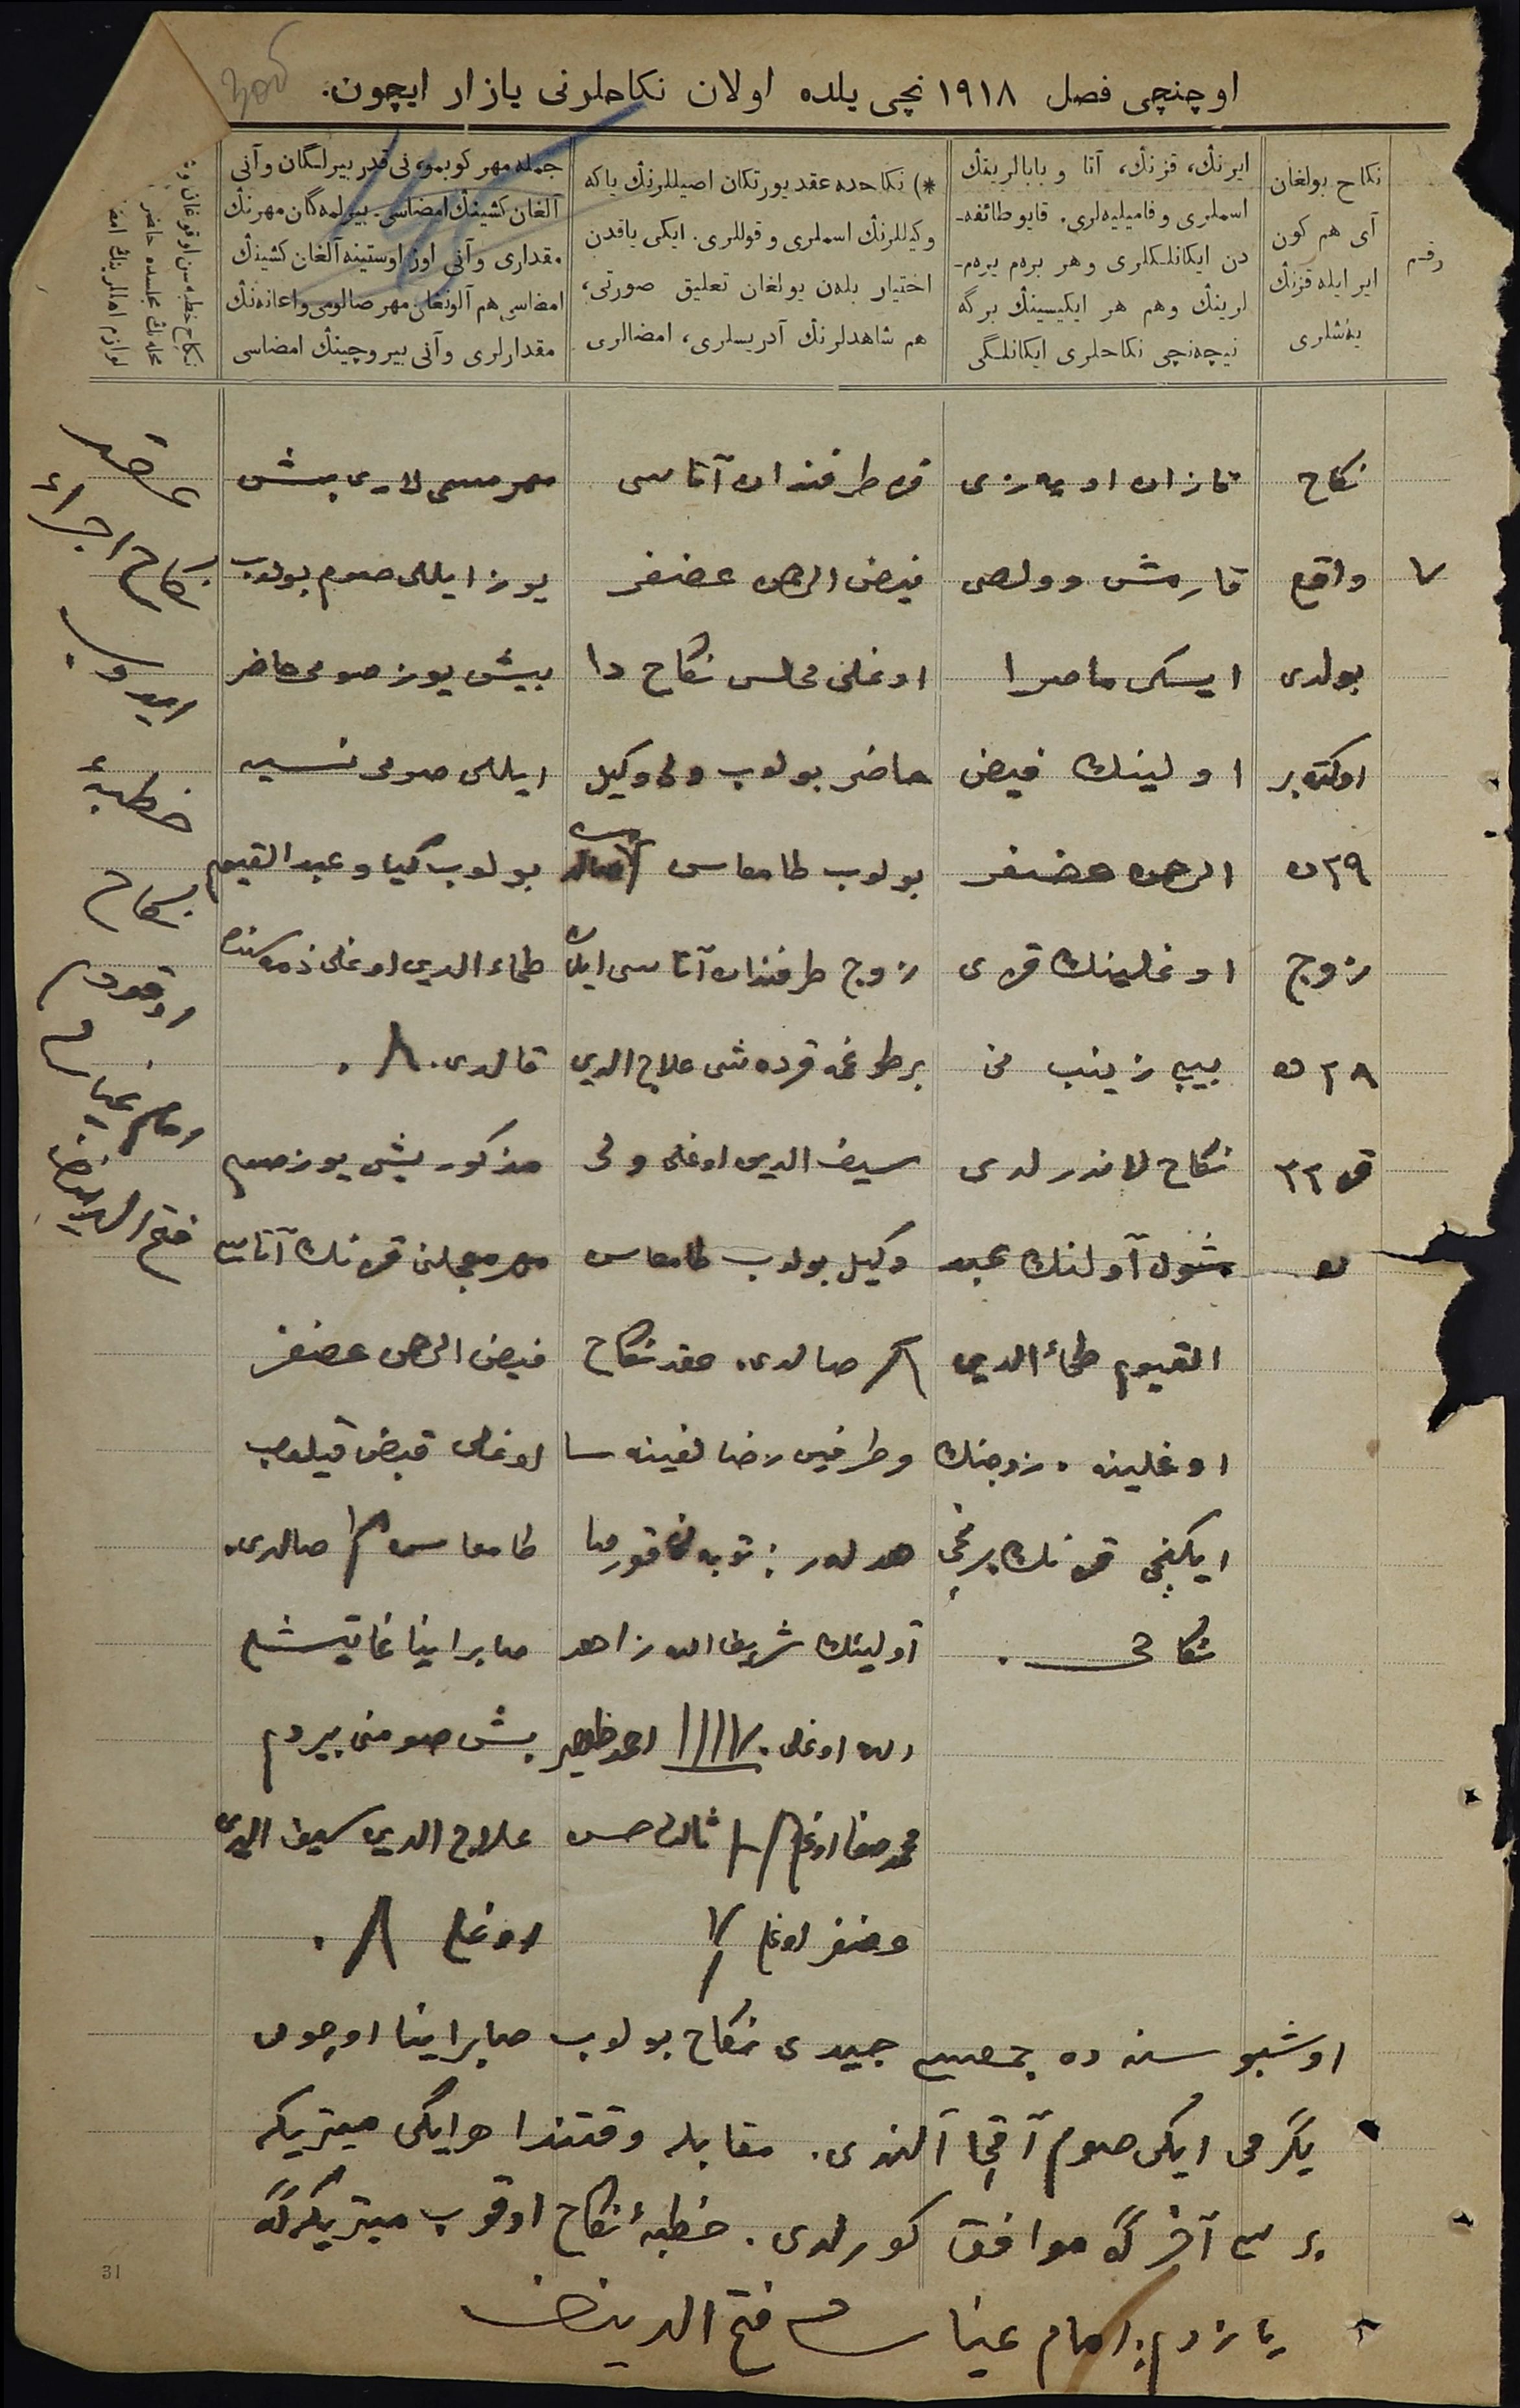 اوچنچی فصل ۱۹۱۸ نچی یلده اولان نکاحلرنی یازار ایچون.
رقم
نکاح بولغان
آی هم کون
ایر ایله قزنڭ
یهشلری
ایرنڭ، قزنڭ، آتا و بابالرینڭ
اسملری و فامیلیهلری. قایو طائفه-
دن ایکانلکلری وهر برهم یرهم-
لرینڭ وهم هر ایکیسینڭ برگه
نیچهنچی نکاحلری ایکانلگی
*) نکاحده عقد یورتکان اصیللرنڭ یاکه
وکیللرنڭ اسملری و قوللری. ایکی یاقدن
اختیار بلهن بولغان تعلیق صورتی،
هم شاهدلرنڭ آدریسلری، امضالری
جمله مهر کوبمو، نی قدر بیرلگان وآنی
آلغان کشینڭ امضاسی. بیرلمهگان مهرنڭ
مقداری وآنی اوز اوستینه آلغان کشینڭ
امضاسی هم آلونغان مهر صالومی واعانهنڭ
مقدارلری وآنی بیروچینڭ امضاسی
نکاح خطبهسن اوقوغان
محلهنڭ مجلسده حاضر
لوازم امامالرینڭ
۷
نکاح
واقع
بولدی
اوکتهبر
۲۹ ده
زوج
۲۸ ده
قز ۲۲
ده
قازان اویهزی
قارمش وولصی
ایسکی ماصرا
اولینڭ فیض
الرحمن غضنفر
اوغلینڭ قزی
بیبی زینب نی
نکاح لاندرلدی
شول آولنڭ عبد
القیوم ضیاءالدین
اوغلینه. زوجنڭ
ایکنچی قزنڭ برنچی
نکاحی.
قز طرفندان آتاسی
فیض الرحمن غضنفر
اوغلی مجلس نکاح دا
حاضر بولوب ولی وکیل
بولوب طامغاسن صالدی
زوج طرفندان آتاسی ایلان
برطوغمه قردهشی علاج الدین
سیف الدین اوغلی ولی
وکیل بولوب طامغاسن
صالدی. عقد نکاح
وطرفین رضالغینه شا
هدلهر: توبهن قورصا
آولینڭ شریف الله زاهد
الله اوغلی. احمد ظهیر
محمد صفا اوغلی ثالث حسن
غضنفر اوغلی
مهر مسمی لاری بیش
یوز ایللی صوم بولوب
بیش یوز صومی حاضر
ایللی صومی نسیه
بولوب کیاو عبد القیوم
ضیاء الدین اوغلی ذمهسنده
قالدی.
مذکور بیش یوز صوم
مهر معجلنی قزنڭ آتاسی
فیض الرحمن غضنفر
اوغلی قبض قیلوب
طامغاسن صالدی.
صابرانیا غا تیشلی
بیش صومنی بیردم
علاج الدین سیف الدین
اوغلی.
عقد
نکاح اجراء
ایدوب
خطبهء
نکاح
اوقودم
امام غیاث
فتح الدینف
اوشبو سنهده جمعسی جیدی نکاح بولوب صابرانیا اوچون
یگرمی ایکی صوم آقچا آلندی. مقابله وقتندا هر ایکی میتریکه
بر سی آخرگه موافق کورلدی. خطبهٔ نکاح اوقوب میتریکهگه
یازدم: امام غیاث فتح الدینف
31